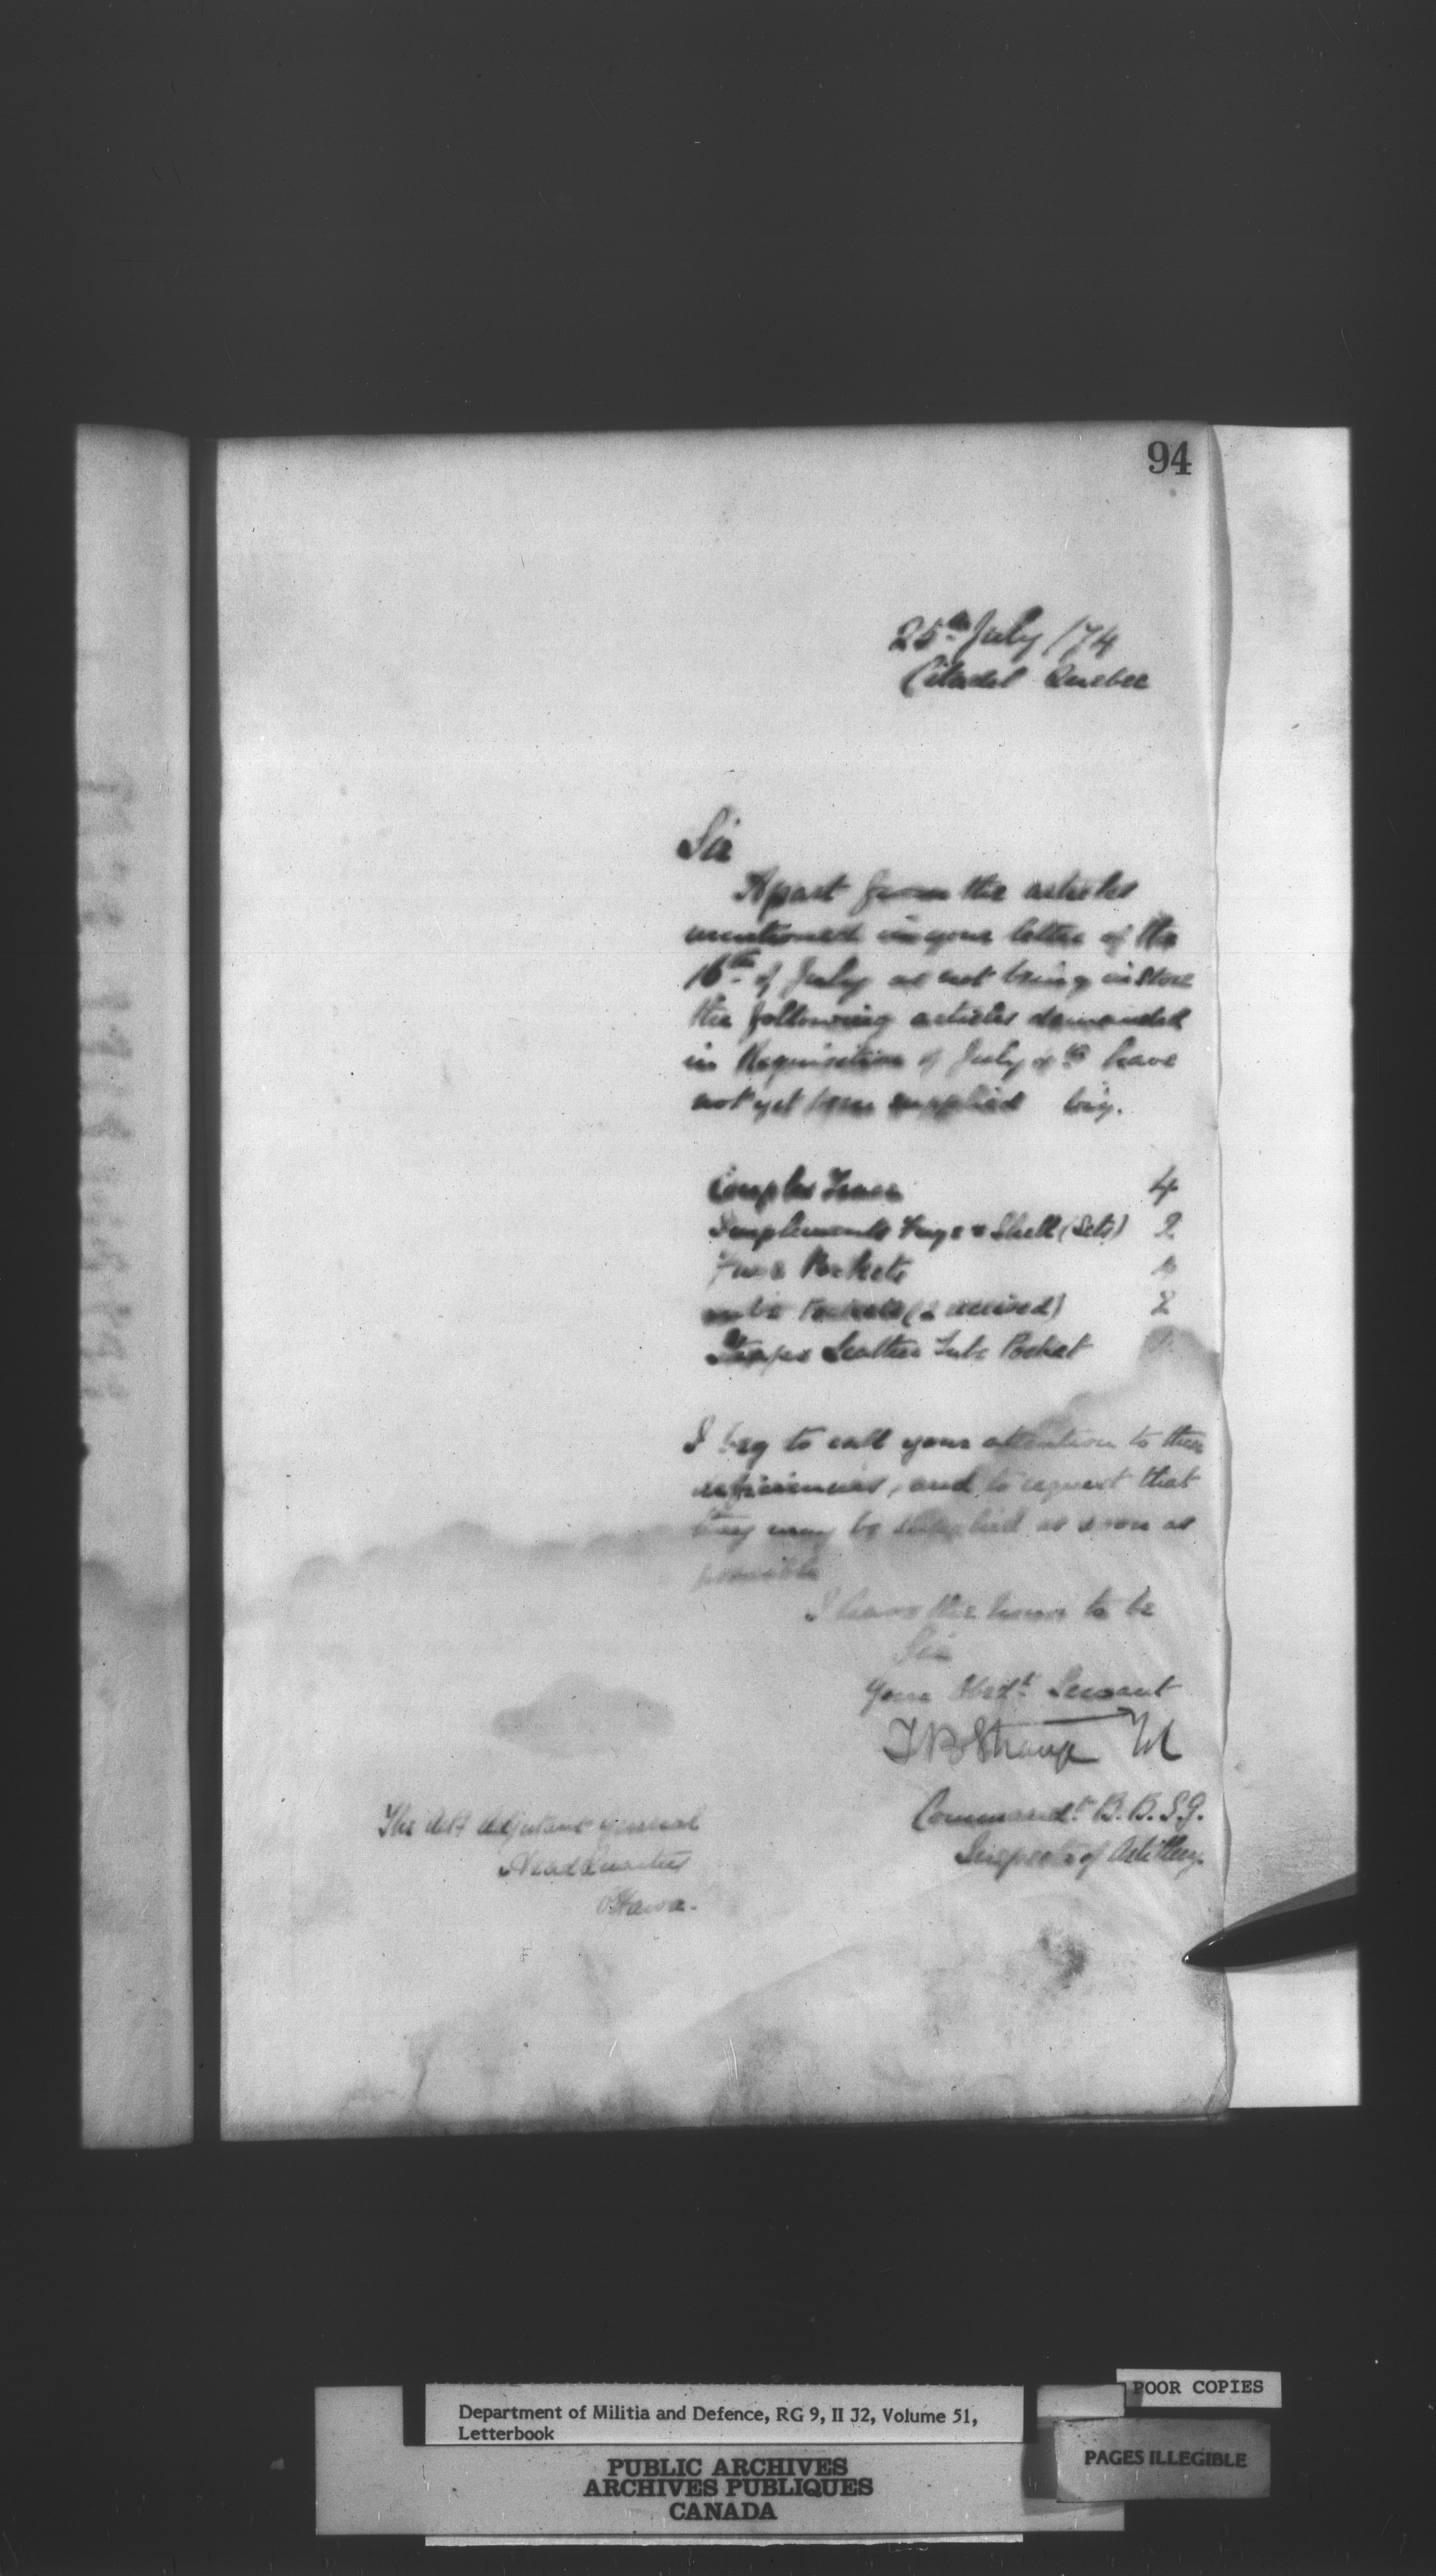 94
25th July /74
Citadel Quebec
Sir
Apart from the articles
mentioned in your letter of the
16th of July as not being in store
the following articles demanded
in Requisition of July have
not yet been supplied viz.
Couples 4
Implements Fuze & Shell (Sets) 2
Fuze Pockets
Tube Pockets (2 received) 2
Straps Leather Tube Pocket
I beg to call your attention to these
deficiencies, and to request that
they may be supplied as soon as
possible
I have the honor to be
Sir
Your Obedt Servant
T B Strange
Commandt B. B. S. G.
Inspector of Artillery.
The Adjutant General
Head Quarters
Ottawa.
POOR COPIES
Department of Militia and Defence, RG 9, II J2, Volume 51,
Letterbook
PAGES ILLEGIBLE
PUBLIC ARCHIVES
ARCHIVES PUBLIQUES
CANADA